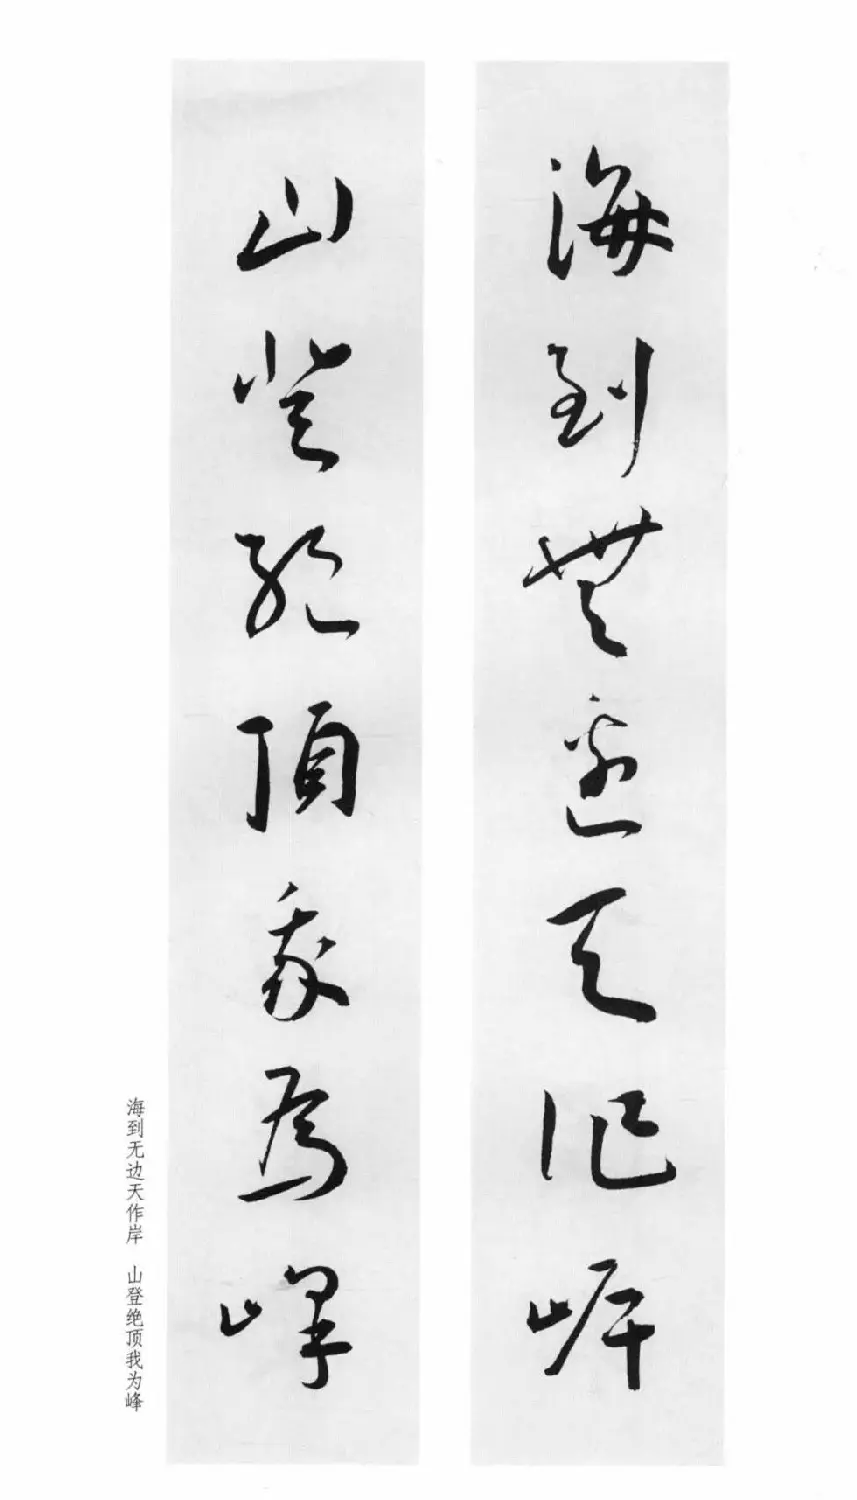 海到無邊天作岸
山登絕頂我為峰
海到无边天作岸 山登绝顶我为峰